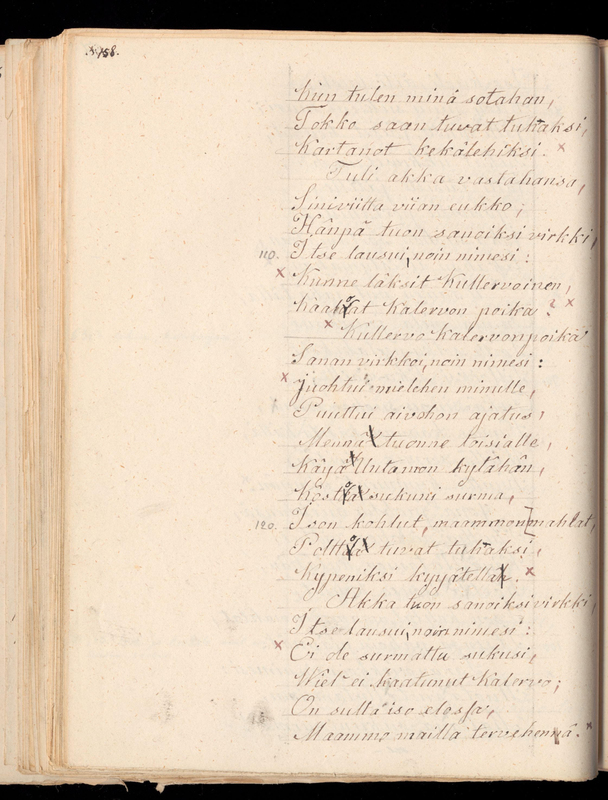 158.
kun tulen minä sotahan,
Tokko saan tuvat tuhaksi,
Kartanot kekälehiksi.
Tuli akka vastahansa,
Siniviitta viian eukko;
Hänpä tuon sanoiksi virkki,
110. Itse lausui, noin nimesi:
Kunne läksit Kullervoinen,
Kalervon poika?
Kullervo Kalervon poika
Sanan virkkoi, noin nimesi:
Juohtui mielehen minulle,
Puuttui aivohon ajatus,
Mennä tuonne toisialle,
Käyä Untamon kylähän,
Kostoa sukuni surma,
120. Ison kohlut, maammon mahlat,
Polttoa tuvat tuhaksi,
Kypeniksi kyyätellä.
Akka tuon sanoiksi virkki,
Itse lausui, noin nimesi:
Ei ole surmattu sukusi,
Wiel' ei kaatunut Kalervo;
On sulla iso elossa,
Maammo mailla tervehennä.